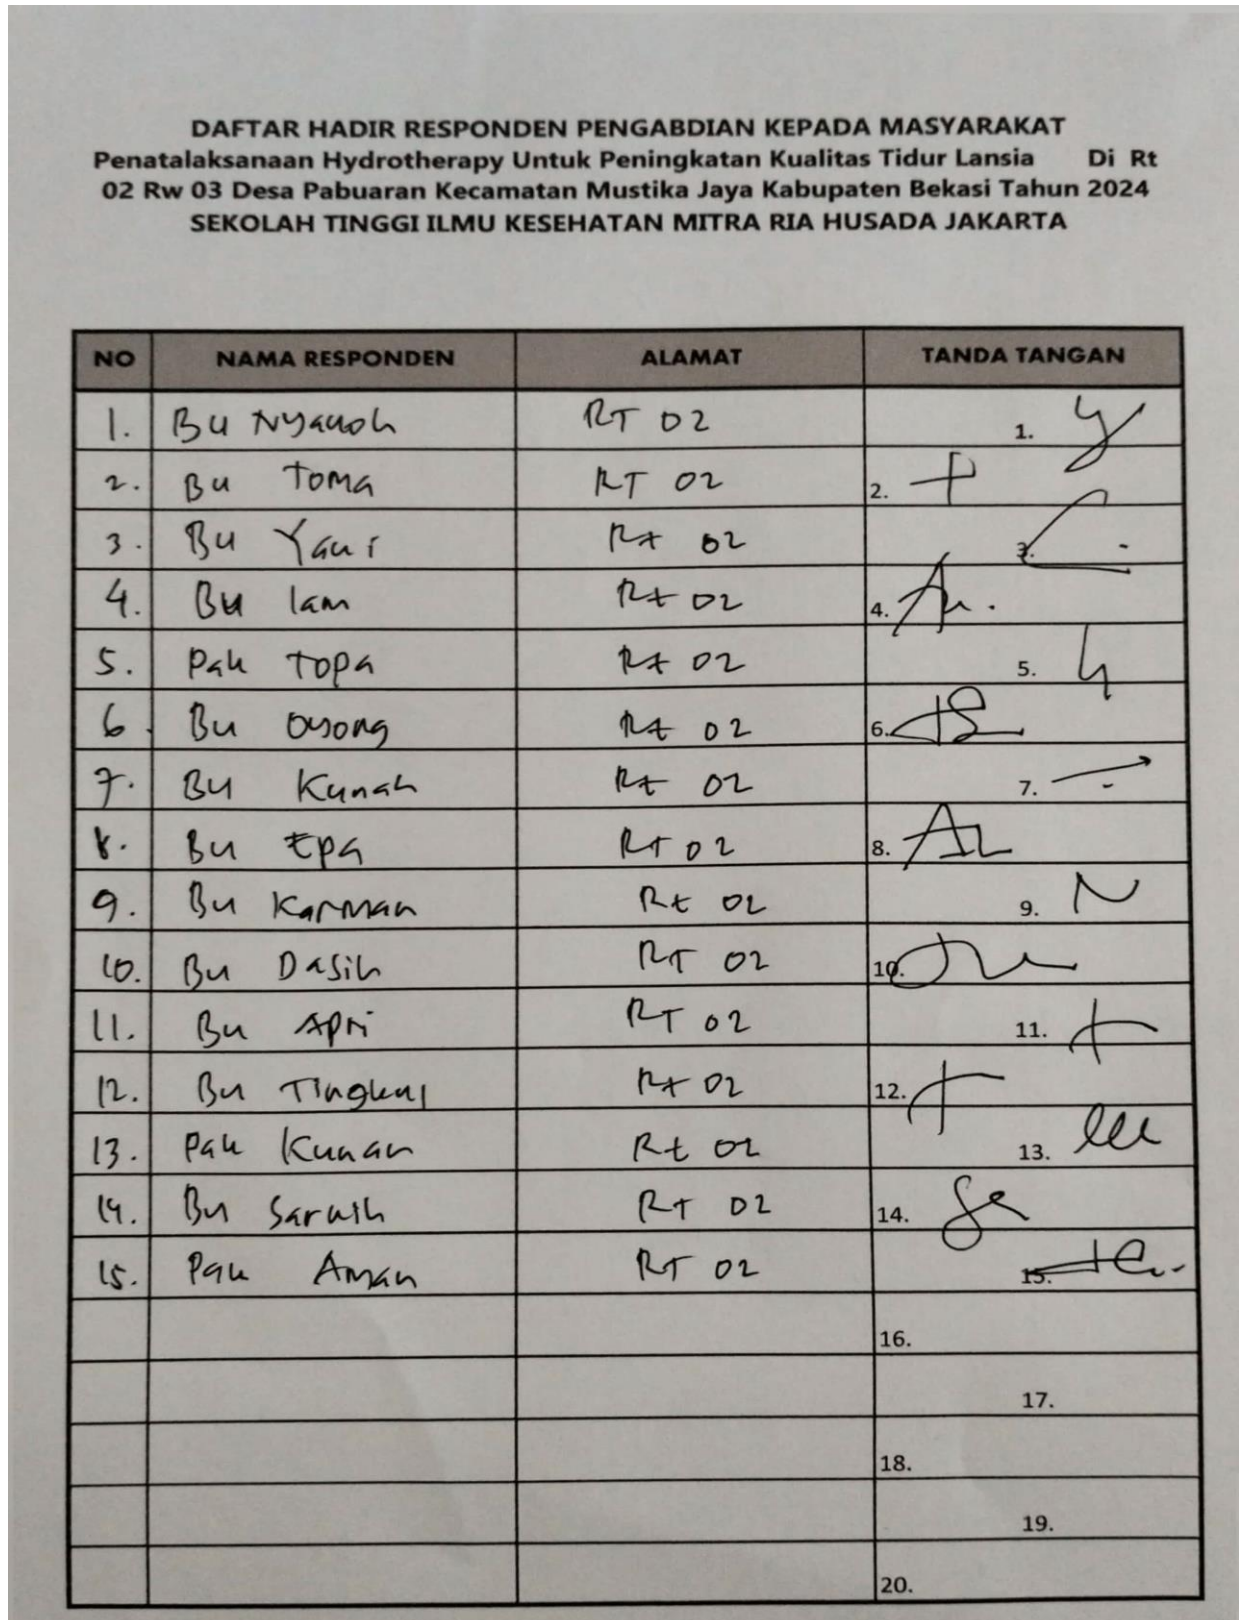 DAFTAR HADIR RESPONDEN PENGABDIAN KEPADA MASYARAKAT
Penatalaksanaan Hydrotherapy Untuk Peningkatan Kualitas Tidur Lansia Di Rt
02 Rw 03 Desa Pabuaran Kecamatan Mustika Jaya Kabupaten Bekasi Tahun 2024
SEKOLAH TINGGI ILMU KESEHATAN MITRA RIA HUSADA JAKARTA
NO NAMA RESPONDEN ALAMAT TANDA TANGAN
1. Bu RT 02 1.
2. Bu Toma RT 02 2.
3. Bu Rt 02 3.
4. Bu Iam Rt 02 4.
5. Pak Topa Rt 02 5.
6. Bu Oyong Rt 02 6.
7. Bu Kunah Rt 02 7.
8. Bu Epa RT 02 8.
9. Bu Karman Rt 02 9.
10. Bu Dasih RT 02 10.
11. Bu Apri RT 02 11.
12. Bu Rt 02 12.
13. Pak Kunan Rt 02 13.
14. Bu RT 02 14.
15. Pak Aman RT 02 15.
16.
17.
18.
19.
20.